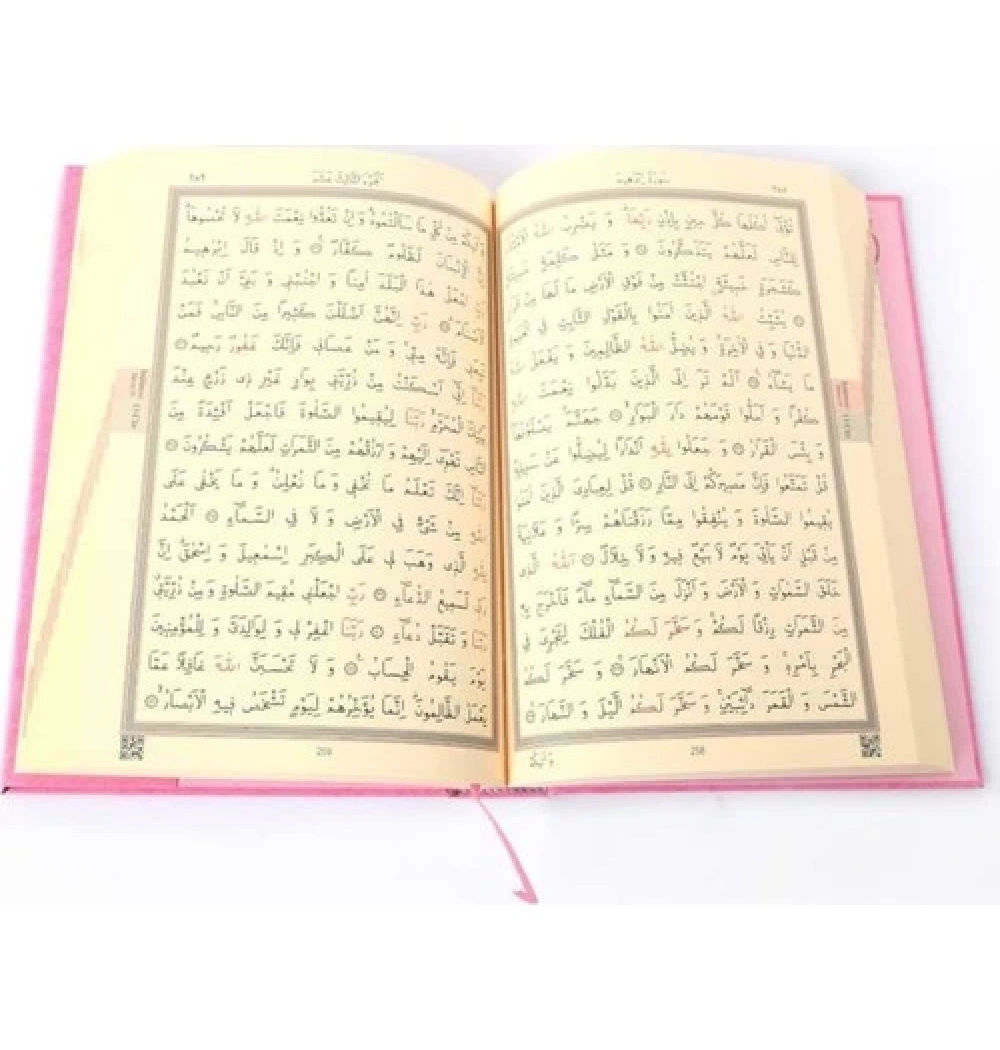 سورة إبراهيم
٢٥٨
تُؤْتِي أُكُلَهَا كُلَّ حِينٍ بِإِذْنِ رَبِّهَا وَ يَضْرِبُ اللّٰهُ الْاَمْثَالَ
لِلنَّاسِ لَعَلَّهُمْ يَتَذَكَّرُونَ ۝ وَ مَثَلُ كَلِمَةٍ خَبِيثَةٍ
كَشَجَرَةٍ خَبِيثَةٍ اجْتُثَّتْ مِنْ فَوْقِ الْاَرْضِ مَا لَهَا مِنْ قَرَارٍ
۝ يُثَبِّتُ اللّٰهُ الَّذِينَ اٰمَنُوا بِالْقَوْلِ الثَّابِتِ فِي الْحَيٰوةِ
الدُّنْيَا وَ فِي الْاٰخِرَةِ وَ يُضِلُّ اللّٰهُ الظَّالِمِينَ وَ يَفْعَلُ اللّٰهُ
مَا يَشَاءُ ۝ اَلَمْ تَرَ اِلَى الَّذِينَ بَدَّلُوا نِعْمَتَ اللّٰهِ
كُفْرًا وَ اَحَلُّوا قَوْمَهُمْ دَارَ الْبَوَارِ ۝ جَهَنَّمَ يَصْلَوْنَهَا
وَ بِئْسَ الْقَرَارُ ۝ وَ جَعَلُوا لِلّٰهِ اَنْدَادًا لِيُضِلُّوا عَنْ سَبِيلِهِ
قُلْ تَمَتَّعُوا فَاِنَّ مَصِيرَكُمْ اِلَى النَّارِ ۝ قُلْ لِعِبَادِيَ الَّذِينَ اٰمَنُوا
يُقِيمُوا الصَّلٰوةَ وَ يُنْفِقُوا مِمَّا رَزَقْنَاهُمْ سِرًّا وَ عَلَانِيَةً
مِنْ قَبْلِ اَنْ يَأْتِيَ يَوْمٌ لَا بَيْعٌ فِيهِ وَ لَا خِلَالٌ ۝ اَللّٰهُ الَّذِي
خَلَقَ السَّمٰوَاتِ وَ الْاَرْضَ وَ اَنْزَلَ مِنَ السَّمَاءِ مَاءً فَاَخْرَجَ بِهِ
مِنَ الثَّمَرَاتِ رِزْقًا لَكُمْ وَ سَخَّرَ لَكُمُ الْفُلْكَ لِتَجْرِيَ فِي
الْبَحْرِ بِاَمْرِهِ وَ سَخَّرَ لَكُمُ الْاَنْهَارَ ۝ وَ سَخَّرَ لَكُمُ
الشَّمْسَ وَ الْقَمَرَ دَائِبَيْنِ وَ سَخَّرَ لَكُمُ الَّيْلَ وَ النَّهَارَ ۝
وَ اٰتٰيكُمْ
258
الجزء الثالث عشر
٢٥٩
وَ اٰتٰيكُمْ مِنْ كُلِّ مَا سَاَلْتُمُوهُ وَ اِنْ تَعُدُّوا نِعْمَتَ اللّٰهِ لَا تُحْصُوهَا
اِنَّ الْاِنْسَانَ لَظَلُومٌ كَفَّارٌ ۝ وَ اِذْ قَالَ اِبْرٰهِيمُ
رَبِّ اجْعَلْ هٰذَا الْبَلَدَ اٰمِنًا وَ اجْنُبْنِي وَ بَنِيَّ اَنْ نَعْبُدَ
الْاَصْنَامَ ۝ رَبِّ اِنَّهُنَّ اَضْلَلْنَ كَثِيرًا مِنَ النَّاسِ فَمَنْ
تَبِعَنِي فَاِنَّهُ مِنِّي وَ مَنْ عَصَانِي فَاِنَّكَ غَفُورٌ رَحِيمٌ ۝
رَبَّنَا اِنِّي اَسْكَنْتُ مِنْ ذُرِّيَّتِي بِوَادٍ غَيْرِ ذِي زَرْعٍ عِنْدَ
بَيْتِكَ الْمُحَرَّمِ رَبَّنَا لِيُقِيمُوا الصَّلٰوةَ فَاجْعَلْ اَفْئِدَةً مِنَ
النَّاسِ تَهْوِي اِلَيْهِمْ وَ ارْزُقْهُمْ مِنَ الثَّمَرَاتِ لَعَلَّهُمْ يَشْكُرُونَ ۝
رَبَّنَا اِنَّكَ تَعْلَمُ مَا نُخْفِي وَ مَا نُعْلِنُ وَ مَا يَخْفٰى عَلَى
اللّٰهِ مِنْ شَيْءٍ فِي الْاَرْضِ وَ لَا فِي السَّمَاءِ ۝ اَلْحَمْدُ
لِلّٰهِ الَّذِي وَهَبَ لِي عَلَى الْكِبَرِ اِسْمٰعِيلَ وَ اِسْحٰقَ اِنَّ
رَبِّي لَسَمِيعُ الدُّعَاءِ ۝ رَبِّ اجْعَلْنِي مُقِيمَ الصَّلٰوةِ وَ مِنْ ذُرِّيَّتِي
رَبَّنَا وَ تَقَبَّلْ دُعَاءِ ۝ رَبَّنَا اغْفِرْ لِي وَ لِوَالِدَيَّ وَ لِلْمُؤْمِنِينَ
يَوْمَ يَقُومُ الْحِسَابُ ۝ وَ لَا تَحْسَبَنَّ اللّٰهَ غَافِلًا عَمَّا
يَعْمَلُ الظَّالِمُونَ اِنَّمَا يُؤَخِّرُهُمْ لِيَوْمٍ تَشْخَصُ فِيهِ الْاَبْصَارُ ۝
259